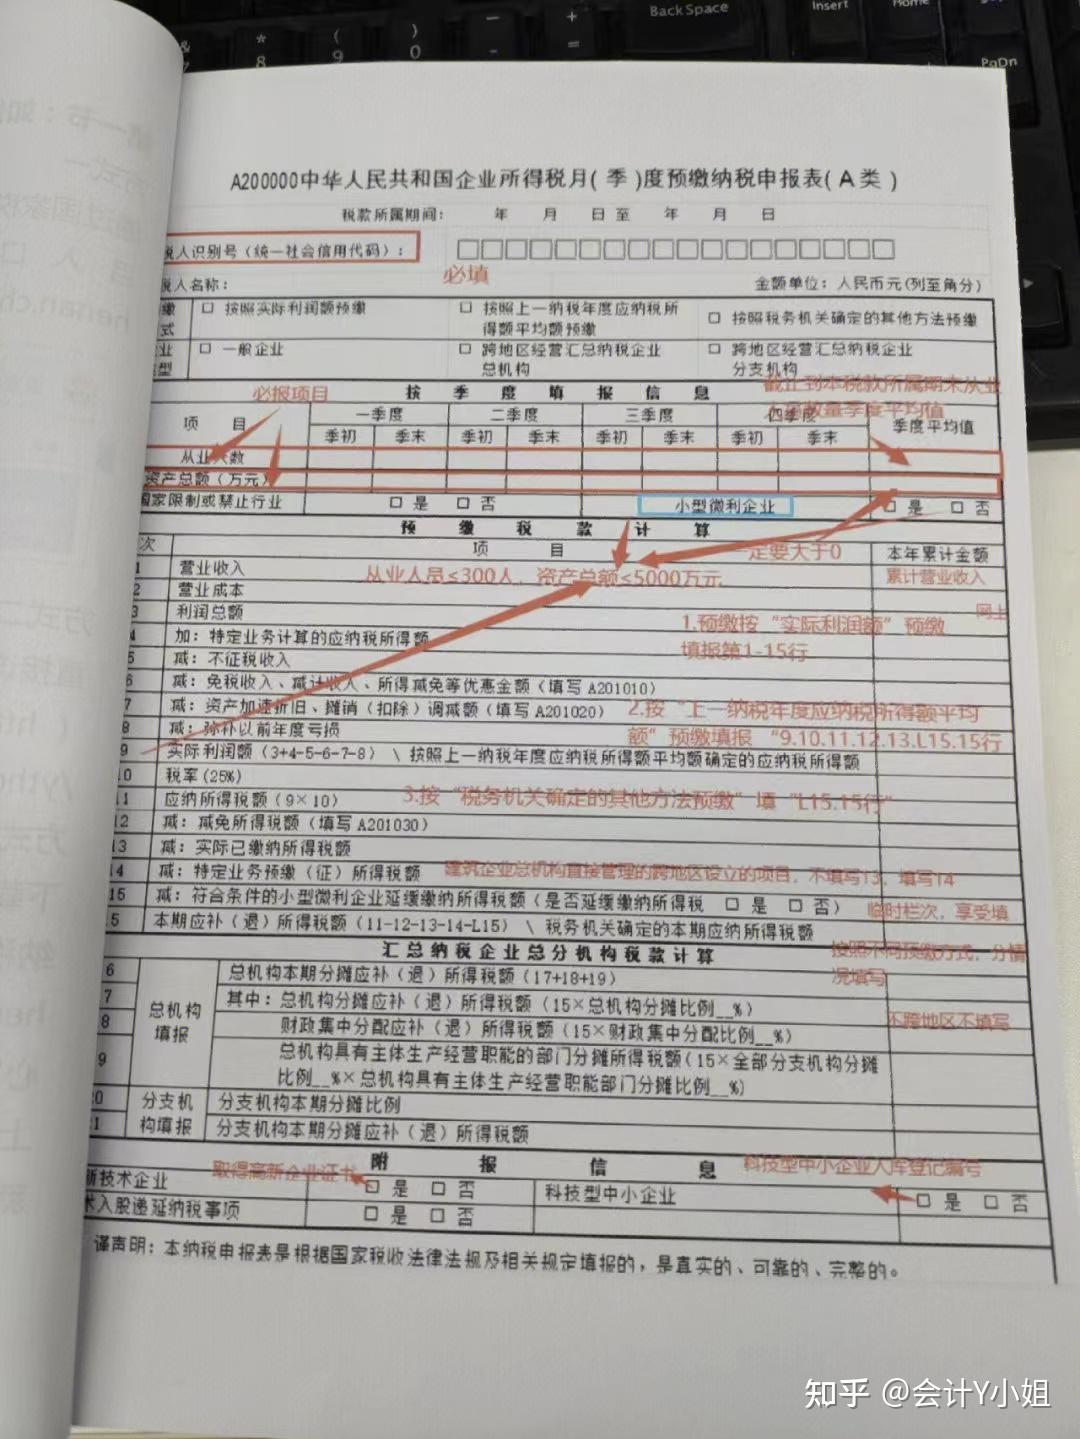 Back Space
Insert
Home
PgDn
& * ( ) — +
7 8 9 0 - =
A200000中华人民共和国企业所得税月(季)度预缴纳税申报表(A类)
税款所属期间: 年 月 日至 年 月 日
税人识别号(统一社会信用代码): □□□□□□□□□□□□□□□□□□
必填
税人名称: 金额单位: 人民币元(列至角分)
缴 □ 按照实际利润额预缴 □ 按照上一纳税年度应纳税所得额平均额预缴 □ 按照税务机关确定的其他方法预缴
式
业 □ 一般企业 □ 跨地区经营汇总纳税企业总机构 □ 跨地区经营汇总纳税企业分支机构
型
必报项目 按 季 度 填 报 信 息 截止到本税款所属期末从业
数量季度平均值
项 目 一季度 二季度 三季度 四季度 季度平均值
季初 季末 季初 季末 季初 季末 季初 季末
从业人数
资产总额(万元)
国家限制或禁止行业 □ 是 □ 否 小型微利企业 □ 是 □ 否
预 缴 税 款 计 算
次 项 目 一定要大于0 本年累计金额
1 营业收入 从业人员≤300人, 资产总额≤5000万元 累计营业收入
2 营业成本
3 利润总额 1.预缴按“实际利润额”预缴 同上
填报第1-15行
4 加: 特定业务计算的应纳税所得额
5 减: 不征税收入
6 减: 免税收入、减计收入、所得减免等优惠金额(填写A201010)
7 减: 资产加速折旧、摊销(扣除)调减额(填写A201020) 2.按“上一纳税年度应纳税所得额平均
额”预缴填报“9.10.11.12.13.L15.15行
8 减: 弥补以前年度亏损
9 实际利润额(3+4-5-6-7-8) \ 按照上一纳税年度应纳税所得额平均额确定的应纳税所得额
10 税率(25%)
11 应纳所得税额(9×10) 3.按“税务机关确定的其他方法预缴”填“L15.15行”
12 减: 减免所得税额(填写A201030)
13 减: 实际已缴纳所得税额
14 减: 特定业务预缴(征)所得税额 建筑企业总机构直接管理的跨地区设立的项目, 不填写13, 填写14
15 减: 符合条件的小型微利企业延缓缴纳所得税额(是否延缓缴纳所得税 □ 是 □ 否) 临时栏次, 享受填
5 本期应补(退)所得税额(11-12-13-14-L15) \ 税务机关确定的本期应纳所得税额
按照不同预缴方式, 分情
况填写
汇总纳税企业总分机构税款计算
6 总机构填报 总机构本期分摊应补(退)所得税额(17+18+19)
7 其中: 总机构分摊应补(退)所得税额(15×总机构分摊比例__%) 不跨地区不填写
8 财政集中分配应补(退)所得税额(15×财政集中分配比例__%)
9 总机构具有主体生产经营职能的部门分摊所得税额(15×全部分支机构分摊
比例__%×总机构具有主体生产经营职能部门分摊比例__%)
20 分支机构填报 分支机构本期分摊比例
21 分支机构本期分摊应补(退)所得税额
附 报 信 息
取得高新企业证书 科技型中小企业入库登记编号
新技术企业 □ 是 □ 否 科技型中小企业 □ 是 □ 否
术入股递延纳税事项 □ 是 □ 否
谨声明: 本纳税申报表是根据国家税收法律法规及相关规定填报的, 是真实的、可靠的、完整的。
知乎 @会计Y小姐